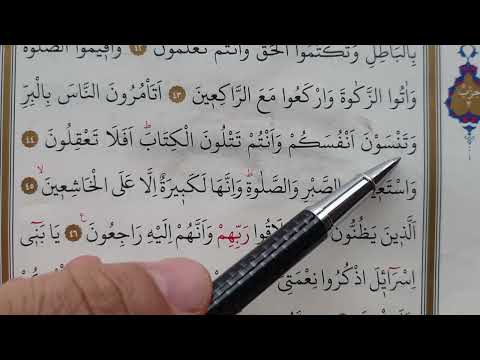 بِالْبَاطِلِ وَتَكْتُمُوا الْحَقَّ وَاَنْتُمْ تَعْلَمُونَ ﴿٤٢﴾ وَاَقِيمُوا الصَّلٰوةَ
وَاٰتُوا الزَّكٰوةَ وَارْكَعُوا مَعَ الرَّاكِعِينَ ﴿٤٣﴾ اَتَأْمُرُونَ النَّاسَ بِالْبِرِّ
وَتَنْسَوْنَ اَنْفُسَكُمْ وَاَنْتُمْ تَتْلُونَ الْكِتَابَۜ اَفَلَا تَعْقِلُونَ ﴿٤٤﴾
الصَّبْرِ وَالصَّلٰوةِۜ وَاِنَّهَا لَكَبِيرَةٌ اِلَّا عَلَى الْخَاشِعِينَۙ ﴿٤٥﴾
اَلَّذِينَ يَظُنُّونَ رَبِّهِمْ وَاَنَّهُمْ اِلَيْهِ رَاجِعُونَ ﴿٤٦﴾ يَا بَنِٓي
اِسْرَٓائِلَ اذْكُرُوا نِعْمَتِيَ